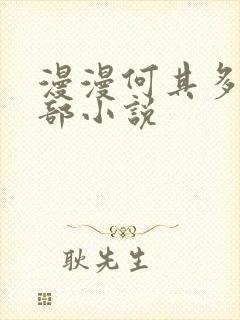 漫漫何其多
部小说
耿先生